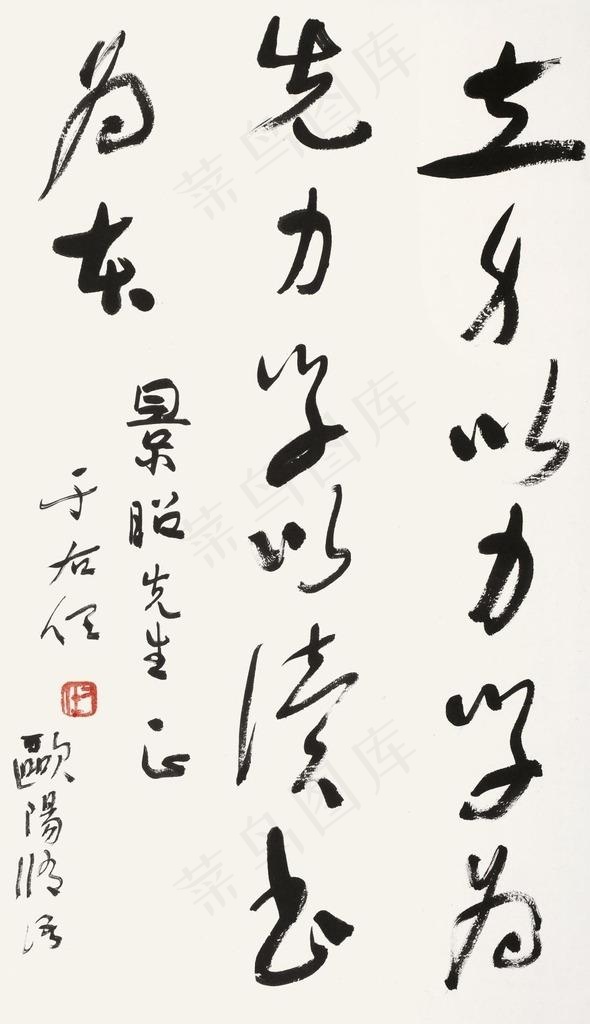 立身以力學為
先力學以讀書
為本
景昭先生 正
于右任
歐陽脩語
菜鸟图库
菜鸟图库
菜鸟图库